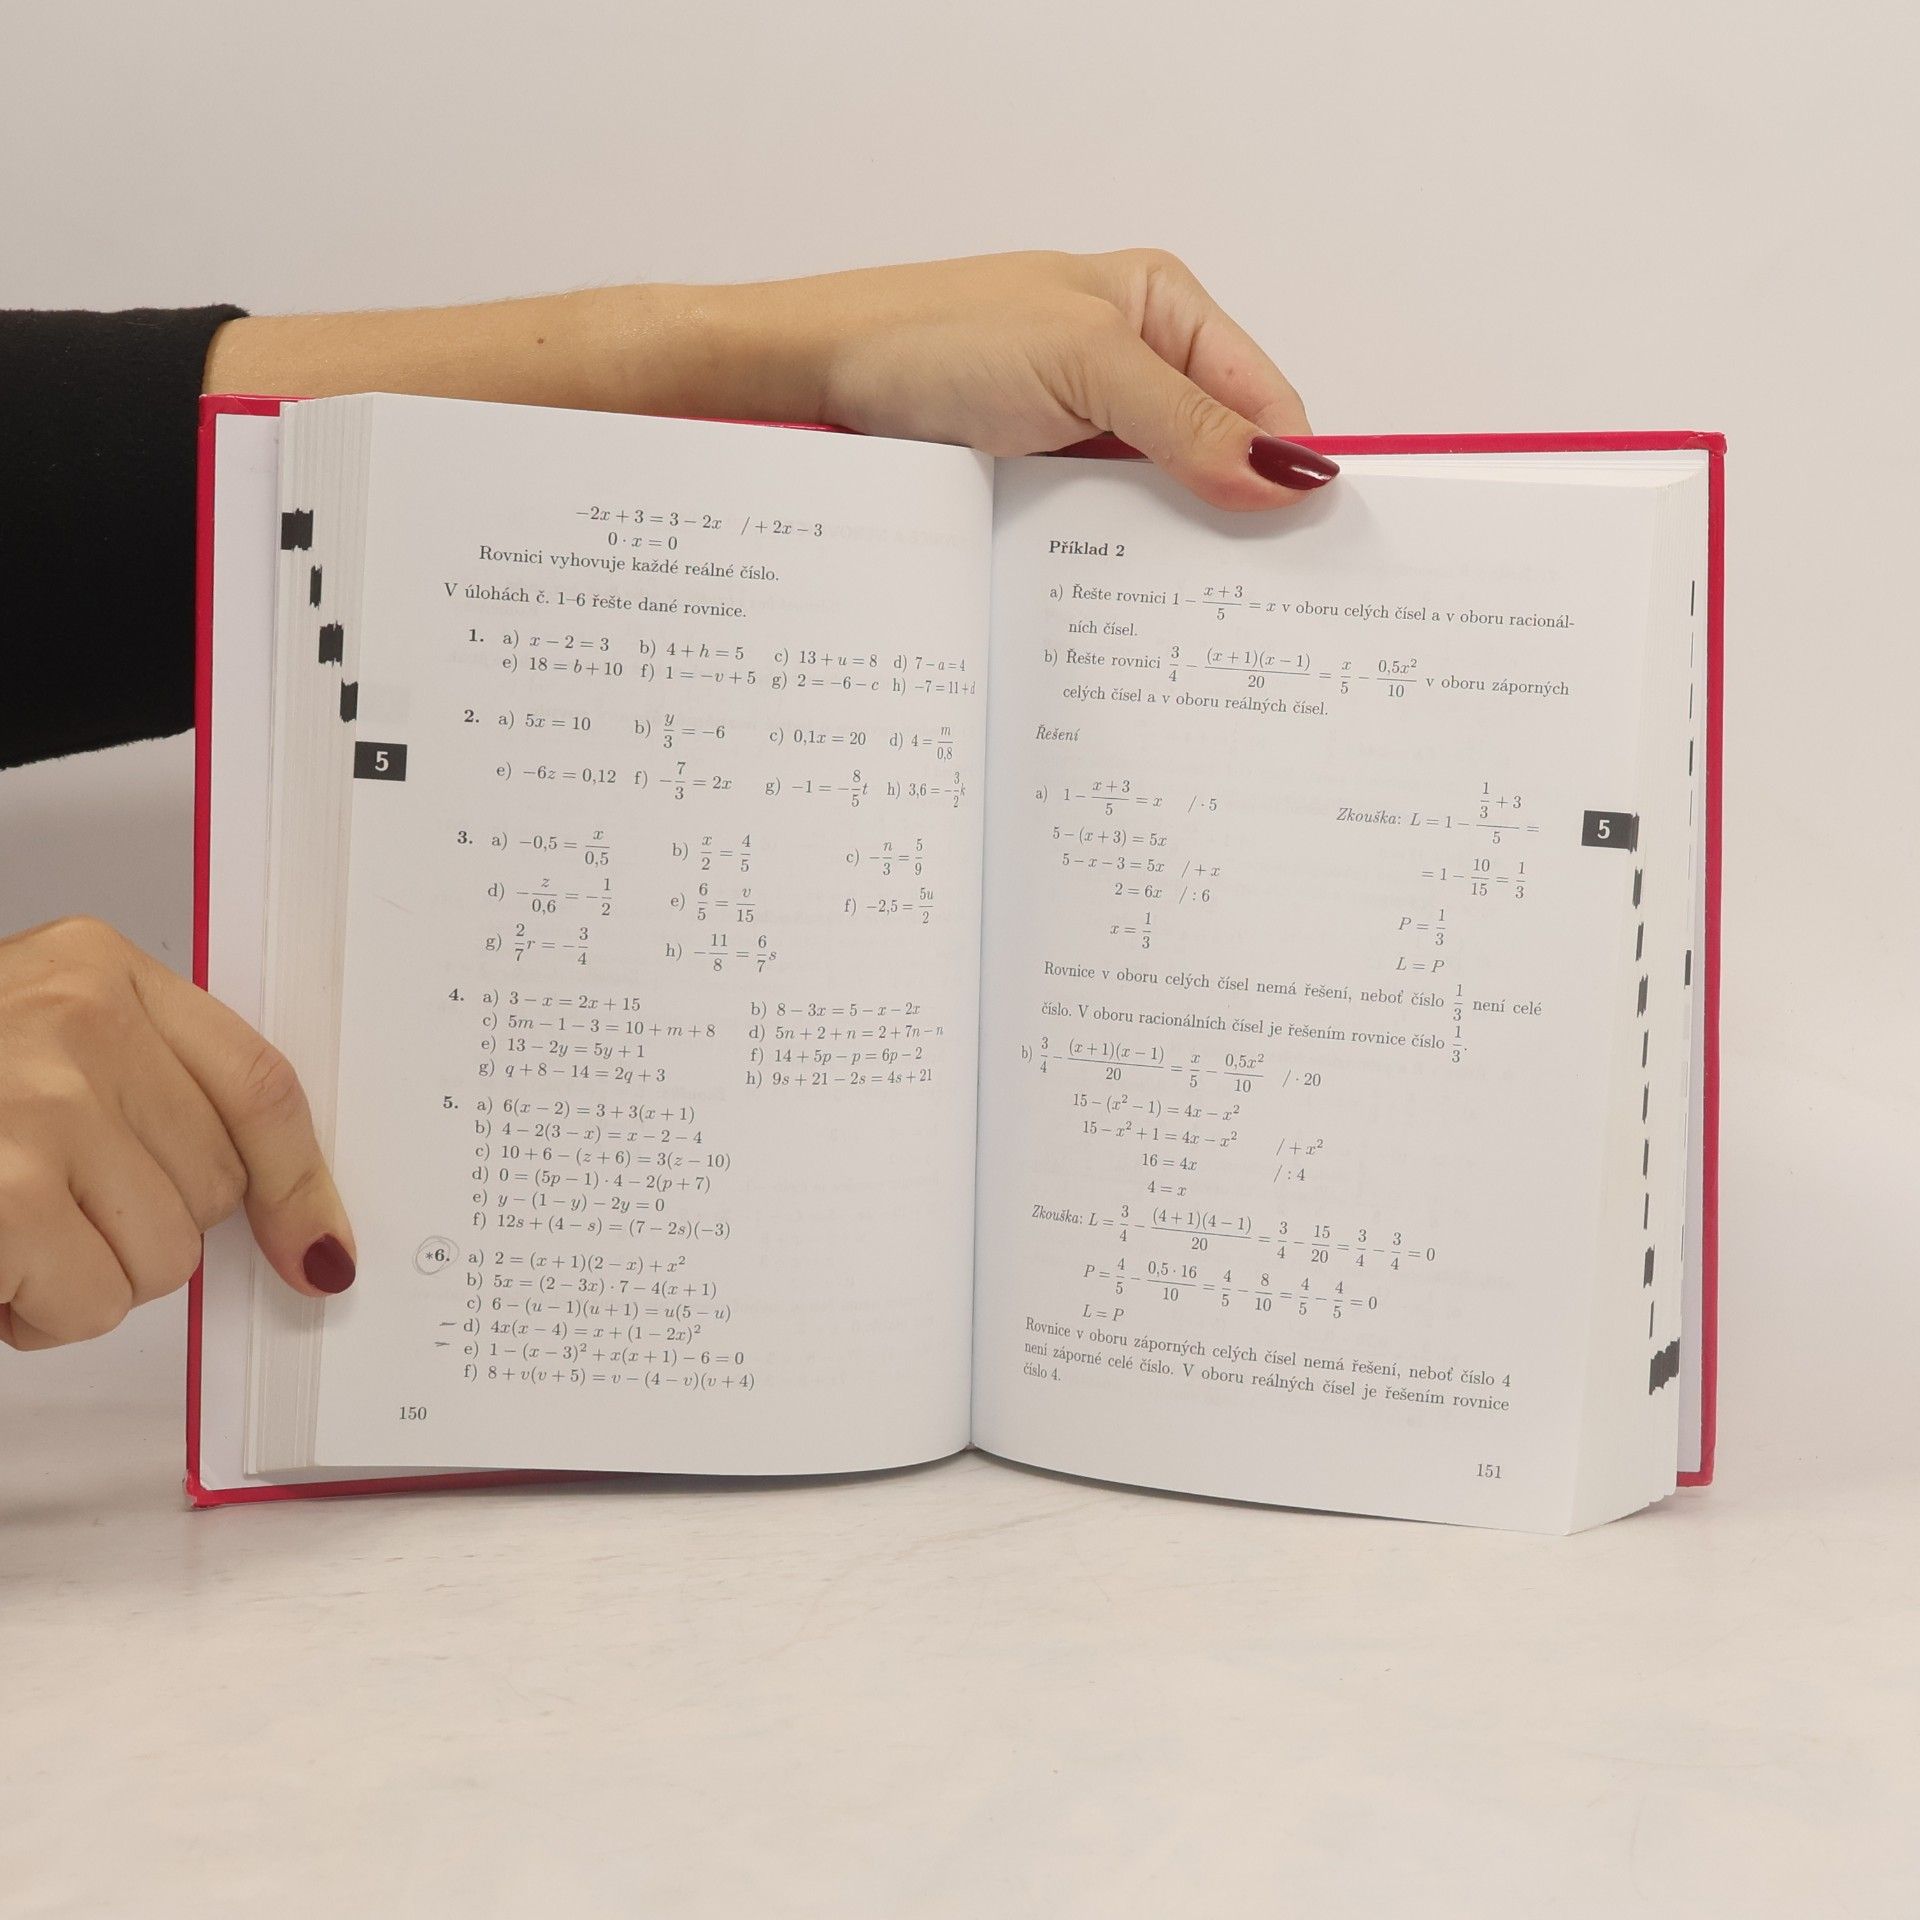 −2x + 3 = 3 − 2x / + 2x − 3
0 · x = 0
Rovnici vyhovuje každé reálné číslo.
V úlohách č. 1–6 řešte dané rovnice.
1. a) x − 2 = 3 b) 4 + h = 5 c) 13 + u = 8 d) 7 − a = 4
e) 18 = b + 10 f) 1 = −v + 5 g) 2 = −6 − c h) −7 = 11 + d
2. a) 5x = 10 b) y/3 = −6 c) 0,1x = 20 d) 4 = m/0,8
5
e) −6z = 0,12 f) −7/3 = 2x g) −1 = −8/5 t h) 3,6 = −3/2 k
3. a) −0,5 = x/0,5 b) x/2 = 4/5 c) −n/3 = 5/9
d) −z/0,6 = −1/2 e) 6/5 = v/15 f) −2,5 = 5u/2
g) 2/7 r = −3/4 h) −11/8 = 6/7 s
4. a) 3 − x = 2x + 15 b) 8 − 3x = 5 − x − 2x
c) 5m − 1 − 3 = 10 + m + 8 d) 5n + 2 + n = 2 + 7n − n
e) 13 − 2y = 5y + 1 f) 14 + 5p − p = 6p − 2
g) q + 8 − 14 = 2q + 3 h) 9s + 21 − 2s = 4s + 21
5. a) 6(x − 2) = 3 + 3(x + 1)
b) 4 − 2(3 − x) = x − 2 − 4
c) 10 + 6 − (z + 6) = 3(z − 10)
d) 0 = (5p − 1) · 4 − 2(p + 7)
e) y − (1 − y) − 2y = 0
f) 12s + (4 − s) = (7 − 2s)(−3)
*6. a) 2 = (x + 1)(2 − x) + x²
b) 5x = (2 − 3x) · 7 − 4(x + 1)
c) 6 − (u − 1)(u + 1) = u(5 − u)
d) 4x(x − 4) = x + (1 − 2x)²
e) 1 − (x − 3)² + x(x + 1) − 6 = 0
f) 8 + v(v + 5) = v − (4 − v)(v + 4)
150
Příklad 2
a) Řešte rovnici 1 − (x + 3)/5 = x v oboru celých čísel a v oboru racionál-
ních čísel.
b) Řešte rovnici 3/4 − (x + 1)(x − 1)/20 = x/5 − 0,5x²/10 v oboru záporných
celých čísel a v oboru reálných čísel.
Řešení
a) 1 − (x + 3)/5 = x / · 5 Zkouška: L = 1 − (1/3 + 3)/5 =
5
5 − (x + 3) = 5x
5 − x − 3 = 5x / + x = 1 − 10/15 = 1/3
2 = 6x / : 6
x = 1/3 P = 1/3
L = P
Rovnice v oboru celých čísel nemá řešení, neboť číslo 1/3 není celé
číslo. V oboru racionálních čísel je řešením rovnice číslo 1/3.
b) 3/4 − (x + 1)(x − 1)/20 = x/5 − 0,5x²/10 / · 20
15 − (x² − 1) = 4x − x²
15 − x² + 1 = 4x − x² / + x²
16 = 4x / : 4
4 = x
Zkouška: L = 3/4 − (4 + 1)(4 − 1)/20 = 3/4 − 15/20 = 3/4 − 3/4 = 0
P = 4/5 − 0,5 · 16/10 = 4/5 − 8/10 = 4/5 − 4/5 = 0
L = P
Rovnice v oboru záporných celých čísel nemá řešení, neboť číslo 4
není záporné celé číslo. V oboru reálných čísel je řešením rovnice
číslo 4.
151